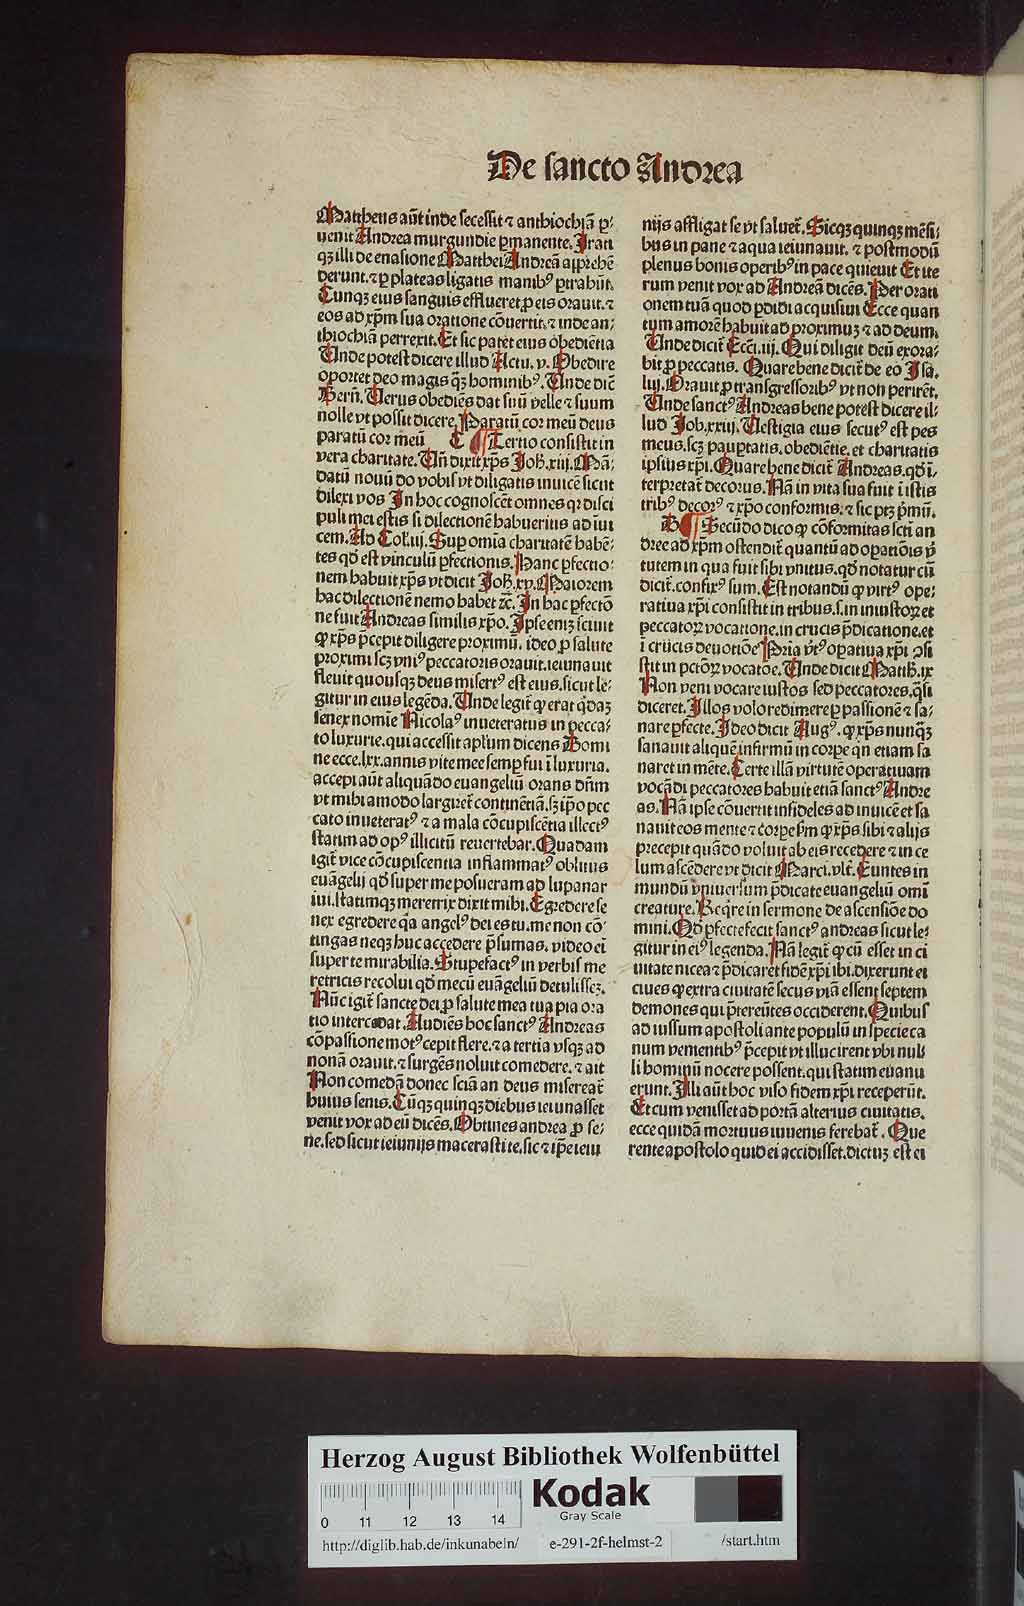 De sancto Andrea
Mattheus aūt inde secessit ⁊ anthiochiā ꝑ-
uenit Andrea murgundie ꝑmanente. Irati
qꝫ illi de euasione Matthei Andreā apprehē
derunt. ⁊ ꝑ plateas ligatis manibꝰ ꝑtrabūt.
Cunqꝫ eius sanguis efflueret ꝓ eis orauit. ⁊
eos ad xp̄m sua oratione cōuertit. ⁊ inde an-
thiochiā perrexit. Et sic patet eius obediētia
Unde potest dicere illud Actu. v. Obedire
oportet deo magis q̄ꝫ hominibꝰ. Unde dic̄
Bern̄. Uerus obediēs dat suū velle ⁊ suum
nolle vt possit dicere. Paratū cor meū deus
paratū cor meū C ¶ Tertio consistit in
vera charitate. Un̄ dixit xp̄s Joh̄. xiij. Mā-
datū nouū do vobis vt diligatis inuicē sicut
dilexi vos In hoc cognoscēt omnes qꝛ disci
puli mei estis si dilectionē habueritis ad iui
cem. Ad Col. iij. Suꝑ om̄ia charitatē habē-
tes qd̄ est vinculū ꝑfectionis. Hanc ꝑfectio-
nem habuit xp̄s vt dicit Joh̄. xv. Maiorem
hac dilectionē nemo habet ⁊c̄. In hac ꝑfectō
ne fuit Andreas similis xp̄o. Ipse enīꝫ sciuit
ꝙ xp̄s p̄cepit diligere proximū. ideo ꝓ salute
proximi scꝫ vniꝰ peccatoris orauit. ieiunauit
fleuit quousqꝫ deus misertꝰ est eius. sicut le-
gitur in eius legēda. Unde legit̄ ꝙ erat qͥdaꝫ
senex nomīe Nicolaꝰ inueteratus in pecca-
to luxurie. qui accessit ap̄lum dicens Domi
ne ecce. lxx. annis vite mee semꝑ fui ī luxuria.
accepi aūt aliquādo euangeliū orans dn̄m
vt mihi amodo largiret̄ continētiā. sꝫ ip̄o pec
cato inueteratꝰ ⁊ a mala cōcupiscētia illectꝰ
statim ad opꝰ illicitū reuertebar. Quadam
igit̄ vice cōcupiscentia inflammatꝰ oblitus
euāgelij qd̄ super me posueram ad lupanar
iui. statimqꝫ meretrix dixit mihi. Egredere se
nex egredere qꝛ angelꝰ dei es tu. me non cō-
tingas neqꝫ huc accedere p̄sumas. video ei
super te mirabilia. Stupefactꝰ in verbis me
retricis recolui qd̄ mecū euāgeliū detulisseꝫ.
Nūc igit̄ sancte dei ꝓ salute mea tua pia ora
tio intercedat. Audiēs hoc sanctꝰ Andreas
cōpassione motꝰ cepit flere. ⁊ a tertia vsqꝫ ad
nonā orauit. ⁊ surgēs noluit comedere. ⁊ ait
Non comedā donec sciā an deus misereat̄
huius senis. Cūqꝫ quinqꝫ diebus ieiunasset
venit vox ad eū dicēs. Obtines andrea ꝓ se-
ne. sed sicut ieiunijs macerasti te. sic ⁊ ip̄e ieiu
nijs affligat se vt saluet̄. Sicqꝫ quinqꝫ mēsi-
bus in pane ⁊ aqua ieiunauit. ⁊ postmodū
plenus bonis operibꝰ in pace quieuit Et ite
rum venit vox ad Andreā dicēs. Per orati
onem tuā quod ꝑdidi acquisiui Ecce quan
tum amorē habuit ad proximuꝫ ⁊ ad deum.
Unde dicit̄ Ecc̄i. iij. Qui diligit deū exora-
bit ꝓ peccatis. Quare bene dicit̄ de eo Isa.
liij. Orauit ꝓ transgressoribꝰ vt non perirēt.
Unde sanctꝰ Andreas bene potest dicere il-
lud Job. xxiij. Uestigia eius secutꝰ est pes
meus. scꝫ pauꝑtatis. obediētie. et charitatis
ipsius xp̄i. Quare bene dicit̄ Andreas. qd̄ ī-
terpretat̄ decorus. Nā in vita sua fuit ī istis
tribꝰ decorꝰ ⁊ xp̄o conformis. ⁊ sic ptꝫ pͥmū.
B ¶ Secūdo dico ꝙ cōformitas scti an
dree ad xp̄m ostendit̄ quantū ad oꝑatiōis vͥ
tutem in qua fuit sibi vnitus. qd̄ notatur cū
dicit̄. confixꝰ sum. Est notandū ꝙ virtꝰ ope-
ratiua xp̄i consistit in tribus. s. in iniustoꝝ et
peccatoꝝ vocatione. in crucis p̄dicatione. et
ī crucis deuotiōe Pria v̄tꝰ oꝑatiua xp̄i ꝯsi
stit in pctōꝝ vocatōe. Unde dicit Matth̄. ix
Non veni vocare iustos sed peccatores. q̄si
diceret. Illos volo redimere ꝑ passionē ⁊ sa-
nare ꝑfecte. Ideo dicit Augꝰ. ꝙ xp̄s nunq̄ꝫ
sanauit aliquē infirmū in corꝑe qn̄ etiam sa
naret in mēte. Certe illā virtutē operatiuam
vocādi peccatores habuit etiā sanctꝰ Andre
as. Nā ipse cōuertit infideles ad inuicē et sa
nauit eos mente ⁊ corꝑe sm̄ ꝙ xp̄s sibi ⁊ alijs
precepit quādo voluit ab eis recedere ⁊ in ce
lum ascēdere vt dicit̄ Marci. vlt̄. Euntes in
mundū vniuersum p̄dicate euangeliū omī
creature. Req̄re in sermone de ascensiōe do
mini. Qd̄ ꝑfecte fecit sanctꝰ andreas sicut le-
gitur in eiꝰ legenda. Nā legit̄ ꝙ cū esset in ci
uitate nicea ⁊ p̄dicaret fidē xp̄i ibi. dixerunt ei
ciues ꝙ extra ciuitatē secus viā essent septem
demones qui p̄tereūtes occiderent. Quibus
ad iussum apostoli ante populū in specie ca
num venientibꝰ p̄cepit vt illuc irent vbi nul-
li hominū nocere possent. qui statim euanu
erunt. Illi aūt hoc viso fidem xp̄i receperūt.
Et cum venisset ad portā alterius ciuitatis.
ecce quidā mortuus iuuenis ferebat̄. Que
rente apostolo quid ei accidisset. dictuꝫ est ei
Herzog August Bibliothek Wolfenbüttel
Kodak
Gray Scale
0 11 12 13 14
http://diglib.hab.de/inkunabeln/ e-291-2f-helmst-2 /start.htm